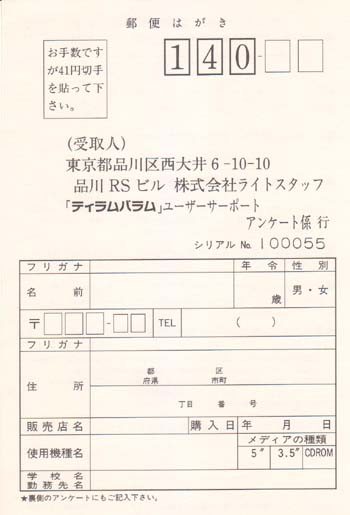 郵便はがき
お手数です
が41円切手
を貼って下
さい。
140-
(受取人)
東京都品川区西大井6-10-10
品川RSビル 株式会社ライトスタッフ
「ティラムバラム」ユーザーサーポート
アンケート係 行
シリアル No. 100055
フリガナ 年令 性別
名前 歳 男・女
〒 - TEL ( )
フリガナ
住所 都府県 区市町
丁目 番 号
販売店名 購入日 年 月 日
使用機種名 メディアの種類
5" 3.5" CDROM
学校名
勤務先名
★裏側のアンケートにもご記入下さい。